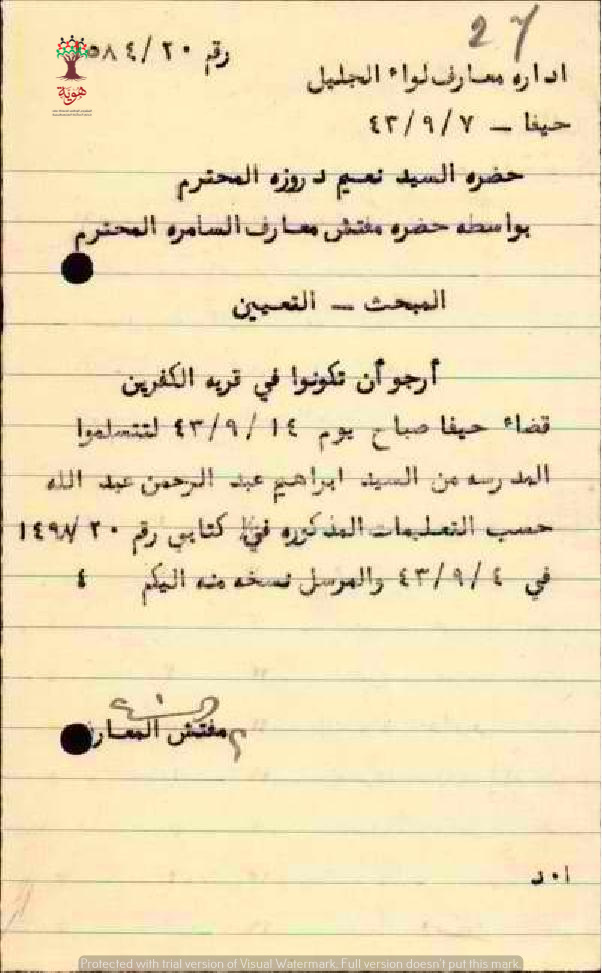 27
رقم ٥٨٤/٢٠
هوية
اداره معارف لواء الجليل
حيفا — ٤٣/٩/٧
حضره السيد نعيم دروزه المحترم
بواسطه حضره مفتش معارف السامره المحترم
المبحث — التعيين
أرجو أن تكونوا في قريه الكفرين
قضاء حيفا صباح يوم ٤٣/٩/١٤ لتتسلموا
المدرسه من السيد ابراهيم عبد الرحمن عبد الله
حسب التعليمات المذكوره في كتابي رقم ١٤٩٨/٢٠
في ٤٣/٩/٤ والمرسل نسخه منه اليكم ٤
مفتش المعارف
ا٠د
Protected with trial version of Visual Watermark. Full version doesn't put this mark.